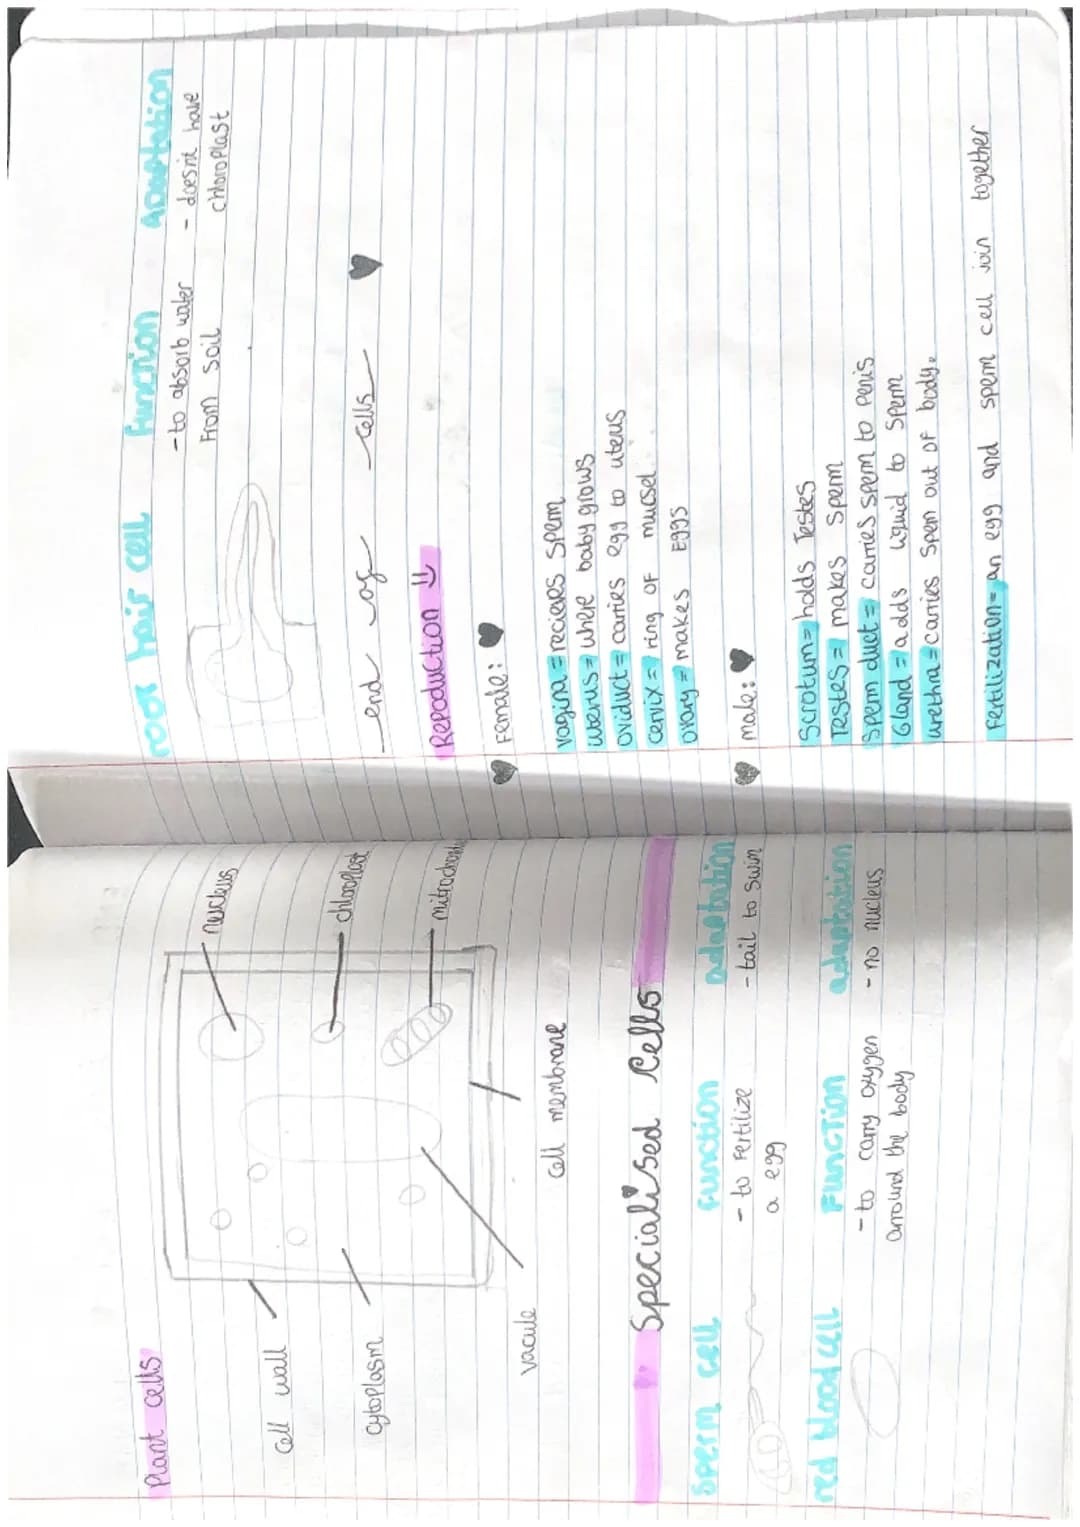 Plant cells
nucleus
Cell wall
chloroplast
cytoplasm
mitrochond
vacule
Cell membrane
Specialised Cells
Sperm cell function adaptation
- to fertilize - tail to swim
a egg
red blood cell Function adaptation
- to carry oxygen - no nucleus
arround the body
root hair cell function adaptation
- to absorb water - doesnt have
from soil chloroplast
end of cells
Reproduction
Female:
vagina = recieves sperm
uterus = where baby grows
oviduct = carries egg to uterus
cervix = ring of mucsel
ovary = makes eggs
male:
Scrotum = holds Testes
Testes = makes sperm
Sperm duct = carries sperm to penis
Gland = adds liquid to sperm
urethra = carries sperm out of body.
Fertilization = an egg and sperm cell join together